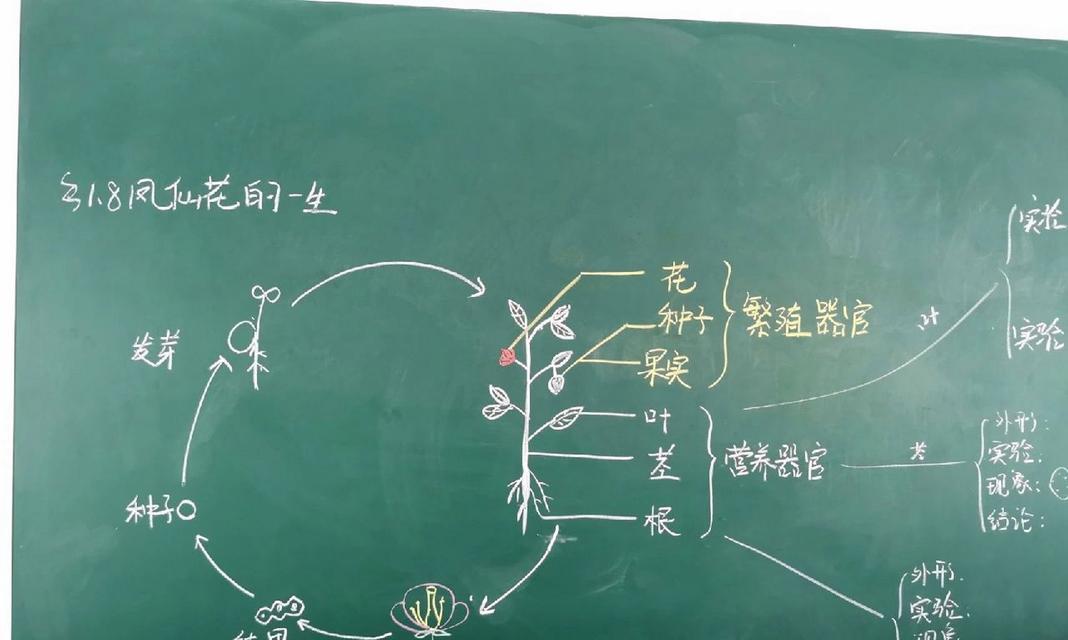 §1.8凤仙花的一生
发芽
种子
花
种子
果实
繁殖器官
叶
茎
根
营养器官
叶
实验
实验
茎
外形:
实验:
现象:
结论:
外形:
实验:
现象
结果